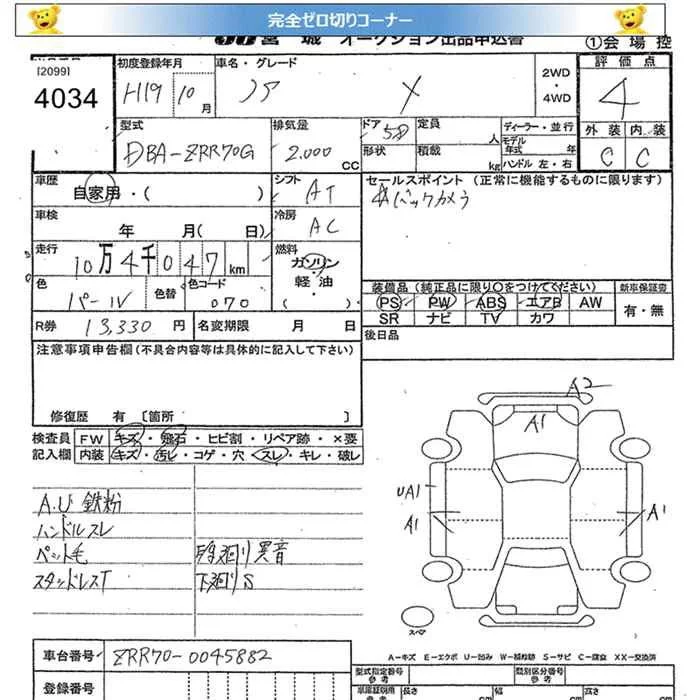 完全ゼロ切りコーナー
宮城 オークション出品申込書 ①会場控
[2099]
4034
初度登録年月 H19 10月
車名・グレード ノア X
2WD・4WD
評価点 4
型式 DBA-ZRR70G
排気量 2.000 CC
ドア 5D
形状
定員 人
積載 kg
ディーラー・並行
モデル年式 年
ハンドル 左・右
外装 内装
C C
車歴 自家用・( )
シフト AT
セールスポイント (正常に機能するものに限ります)
バックカメラ
車検 年 月( 日)
冷房 AC
走行 10万4千047km
燃料 ガソリン・軽油・( )
色 パールV
色替
色コード 070
装備品(純正品に限り○をつけてください)
PS PW ABS エアB AW
SR ナビ TV カワ
新車保証書
有・無
R券 13,330円
名変期限 月 日
後日品
注意事項申告欄(不具合内容等は具体的に記入して下さい)
修復歴 有 [箇所 ]
検査員記入欄
FW キズ・飛石・ヒビ割・リペア跡・×要
内装 キズ・汚レ・コゲ・穴・スレ・キレ・破レ
A.U 鉄粉
ハンドルスレ
ペット毛 異音
スタッドレスT 下廻りS
A2
A1
UA1
A1
A1
スペア
A-キズ E-エクボ U-凹み W-補修跡 S-サビ C-腐食 XX-交換済
車台番号 ZRR70-0045882
登録番号
型式指定番号 参考
類別区分番号 参考
長さ cm
幅
高さ cm